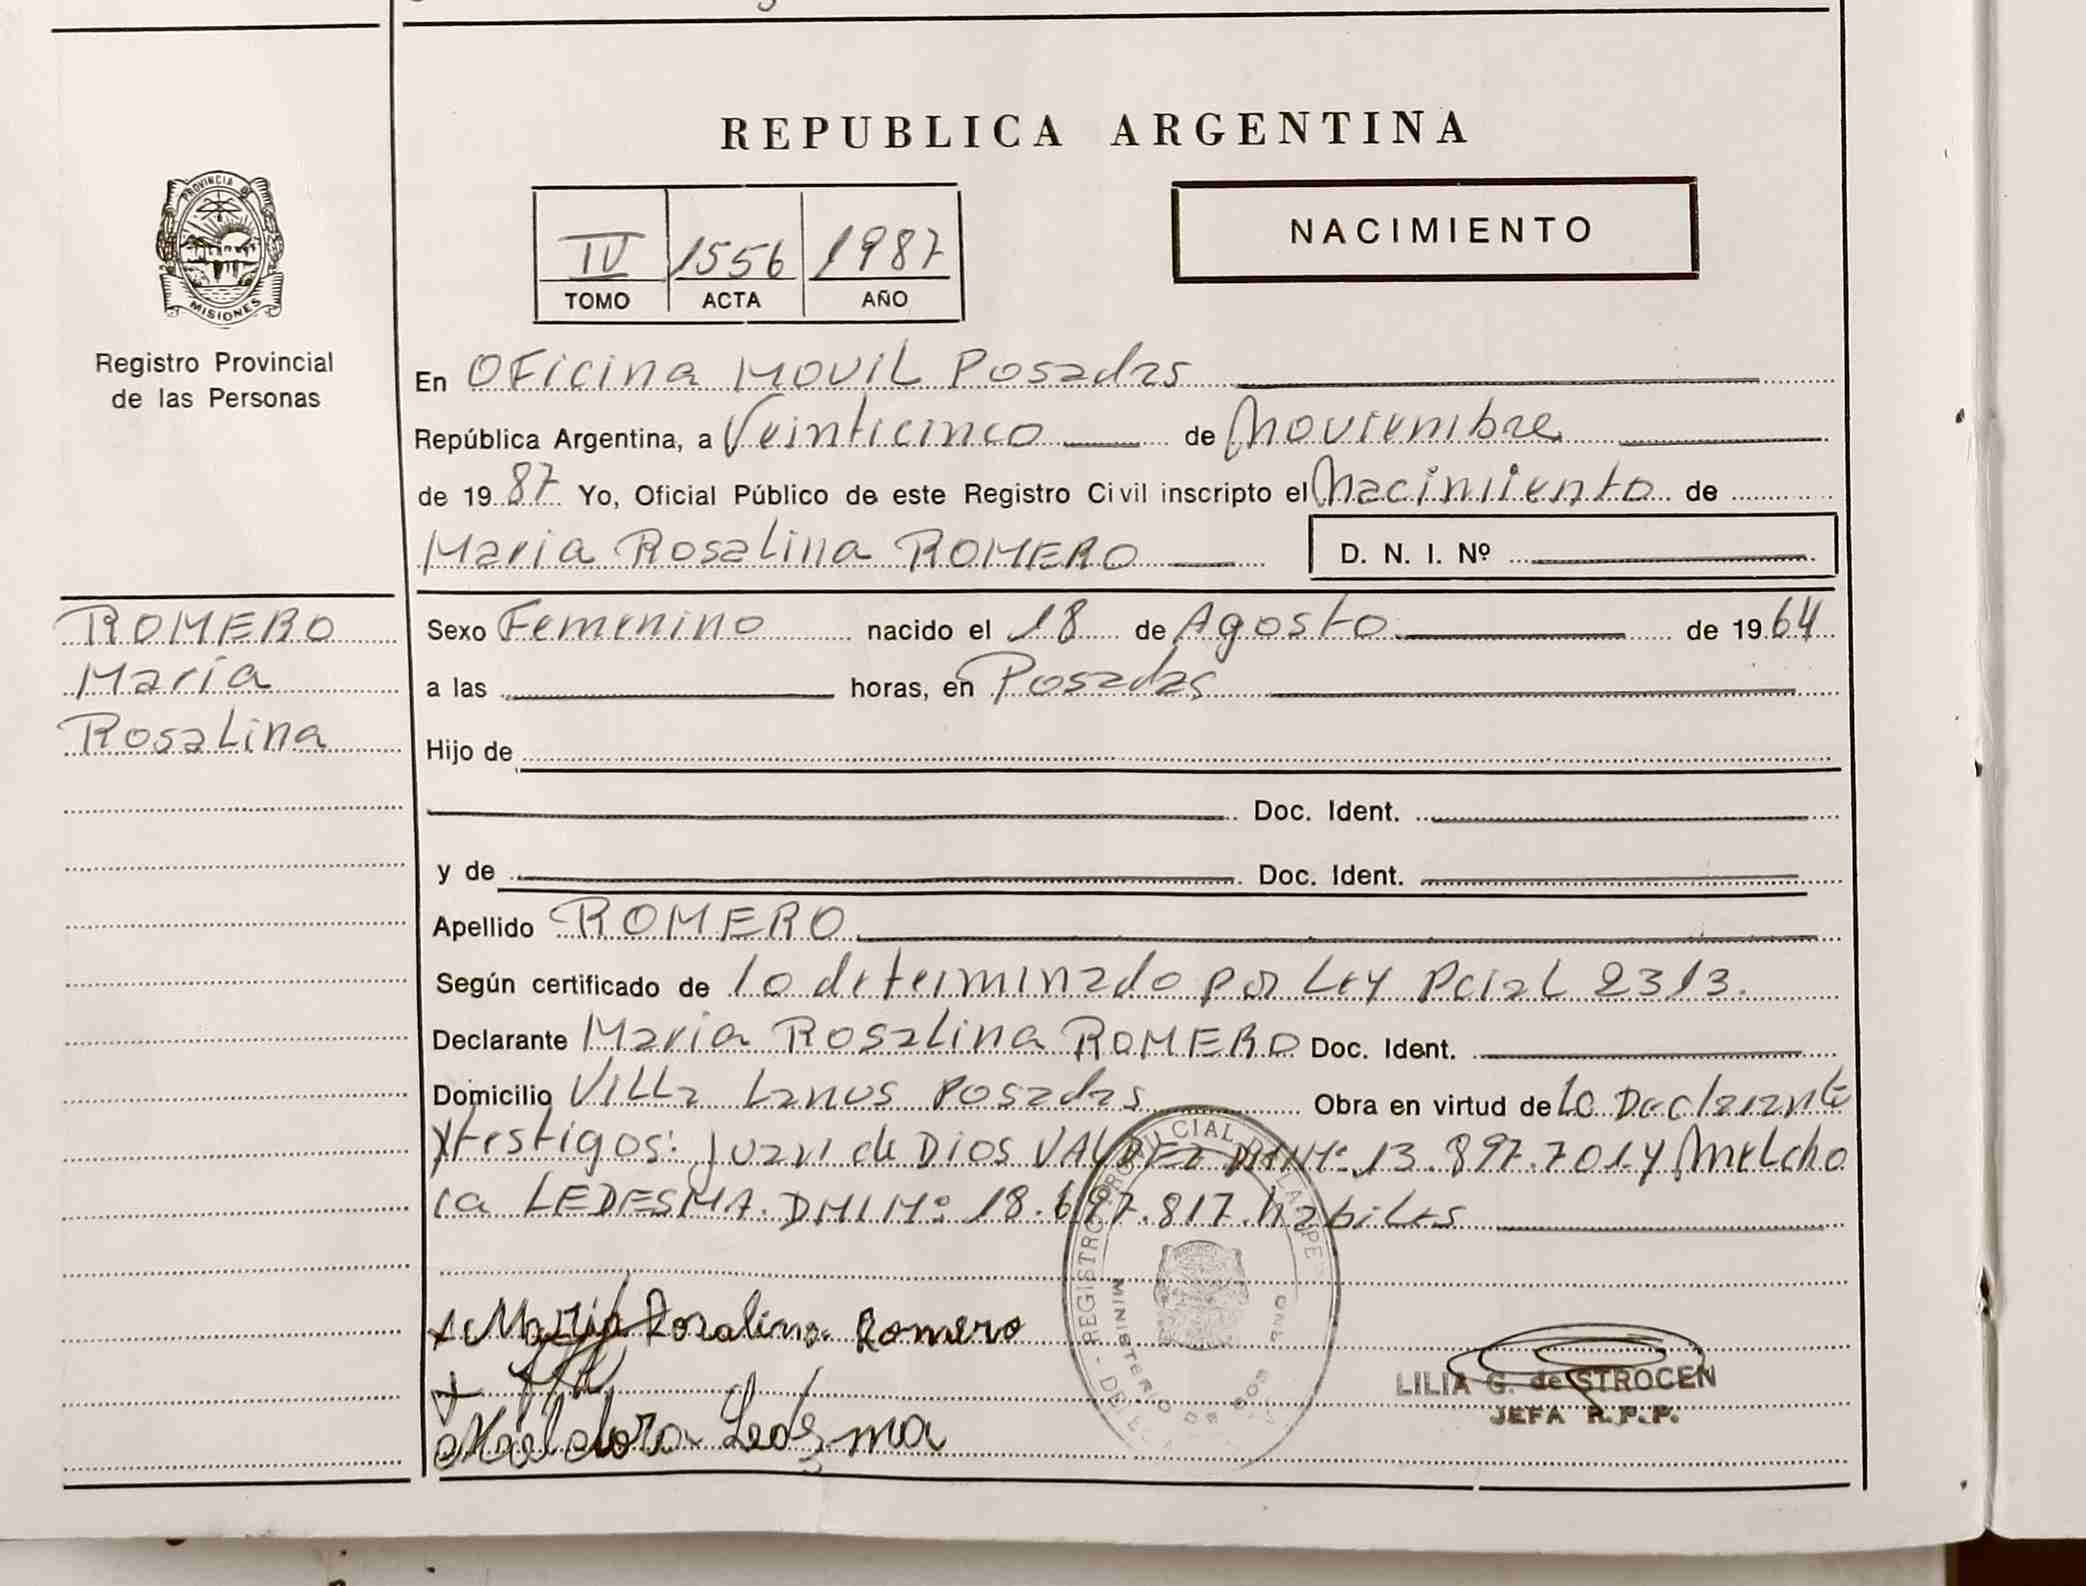 REPUBLICA ARGENTINA
NACIMIENTO
IV 1556 1987
TOMO ACTA AÑO
PROVINCIA DE MISIONES
Registro Provincial
de las Personas
ROMERO
María
Rosalina
En Oficina Movil Posadas
República Argentina, a Veinticinco de Noviembre
de 1987 Yo, Oficial Público de este Registro Civil inscripto el Nacimiento de
Maria Rosalina ROMERO D. N. I. Nº
Sexo Femenino nacido el 18 de Agosto de 1964
a las horas, en Posadas
Hijo de
Doc. Ident.
y de Doc. Ident.
Apellido ROMERO
Según certificado de lo determinado por Ley Pcial 2313.
Declarante Maria Rosalina ROMERO Doc. Ident.
Domicilio Villa Lanus Posadas Obra en virtud de Lo Declarante
y testigos: Juan de Dios VALDEZ DNI Nº: 13.897.701 y Melcho
ra LEDESMA. DNI Nº: 18.697.817. habiles
Maria Rosalina Romero
Melchora Ledezma
REGISTRO PROVINCIAL DE LAS PE
MINISTERIO DE GOB
LILIA G. de STROCEN
JEFA R.P.P.